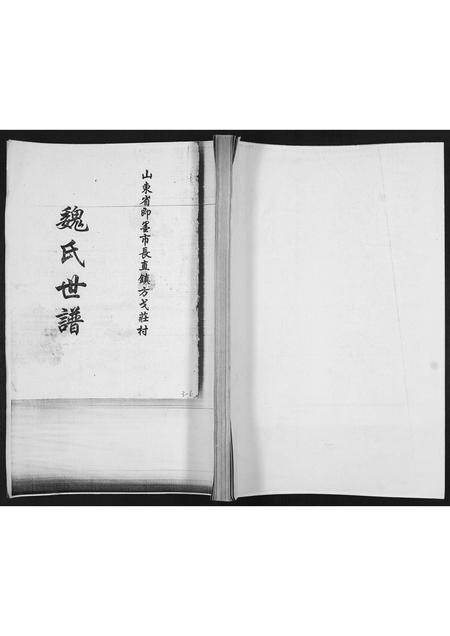 山東省即墨市長直鎮方戈莊村
魏氏世譜